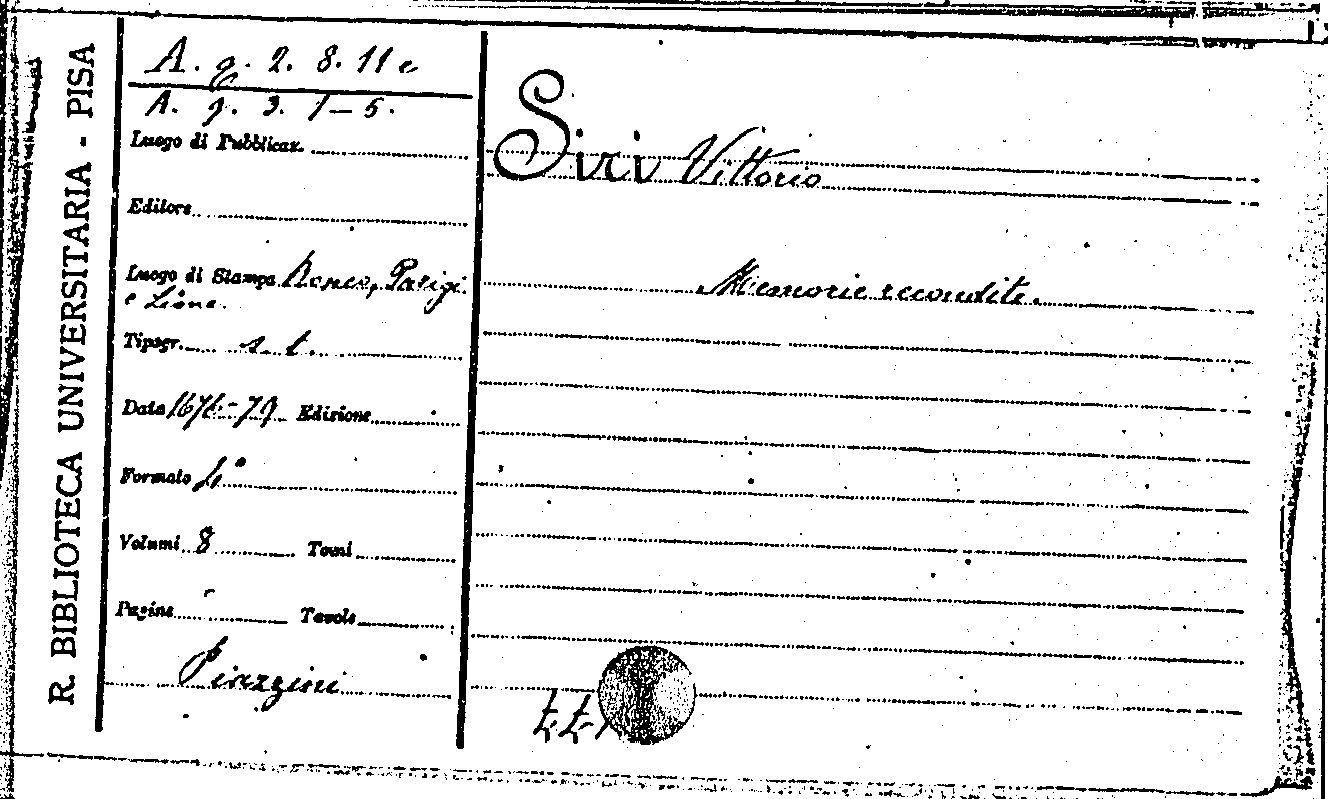 R. BIBLIOTECA UNIVERSITARIA - PISA
A. g. 2. 8. 11 e
A. g. 3. 1-5.
Luogo di Pubblicaz.
Editore
Luogo di Stampa Ronco, Parigi
e Lione.
Tipogr. s. t.
Data 1676-79 Edizione
Formato 4°
Volumi 8 Tomi
Pagine Tavole
Piazzini
Siri Vittorio
Memorie recondite.